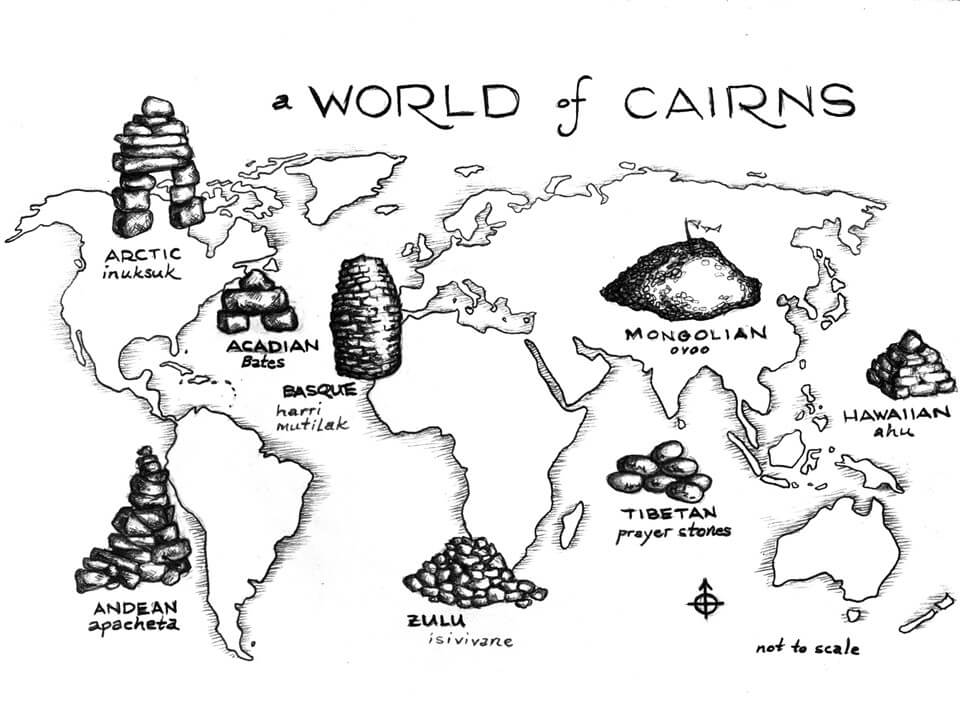 a WORLD of CAIRNS
ARCTIC
inuksuk
ACADIAN
Bates
BASQUE
harri
mutilak
MONGOLIAN
ovoo
HAWAIIAN
ahu
TIBETAN
prayer stones
ANDEAN
apacheta
ZULU
isivivane
not to scale